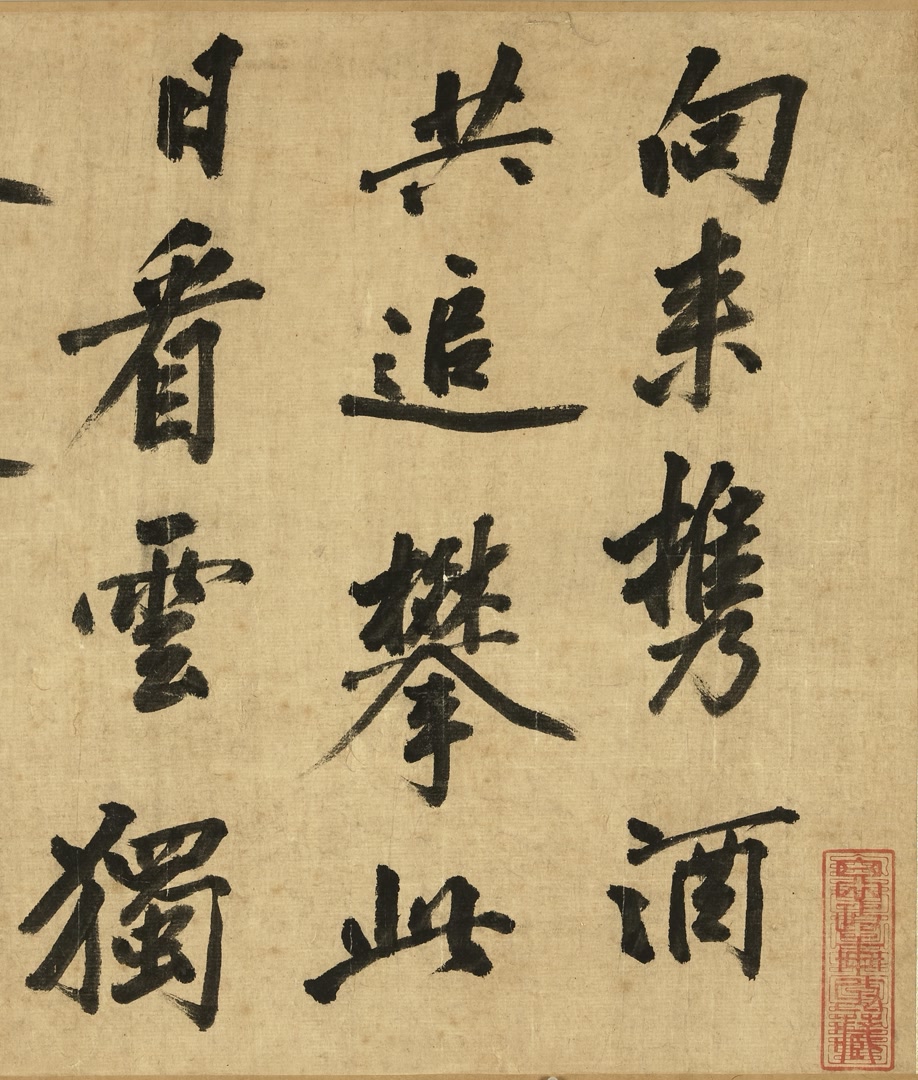 向来携酒
共追攀此
日看雲獨